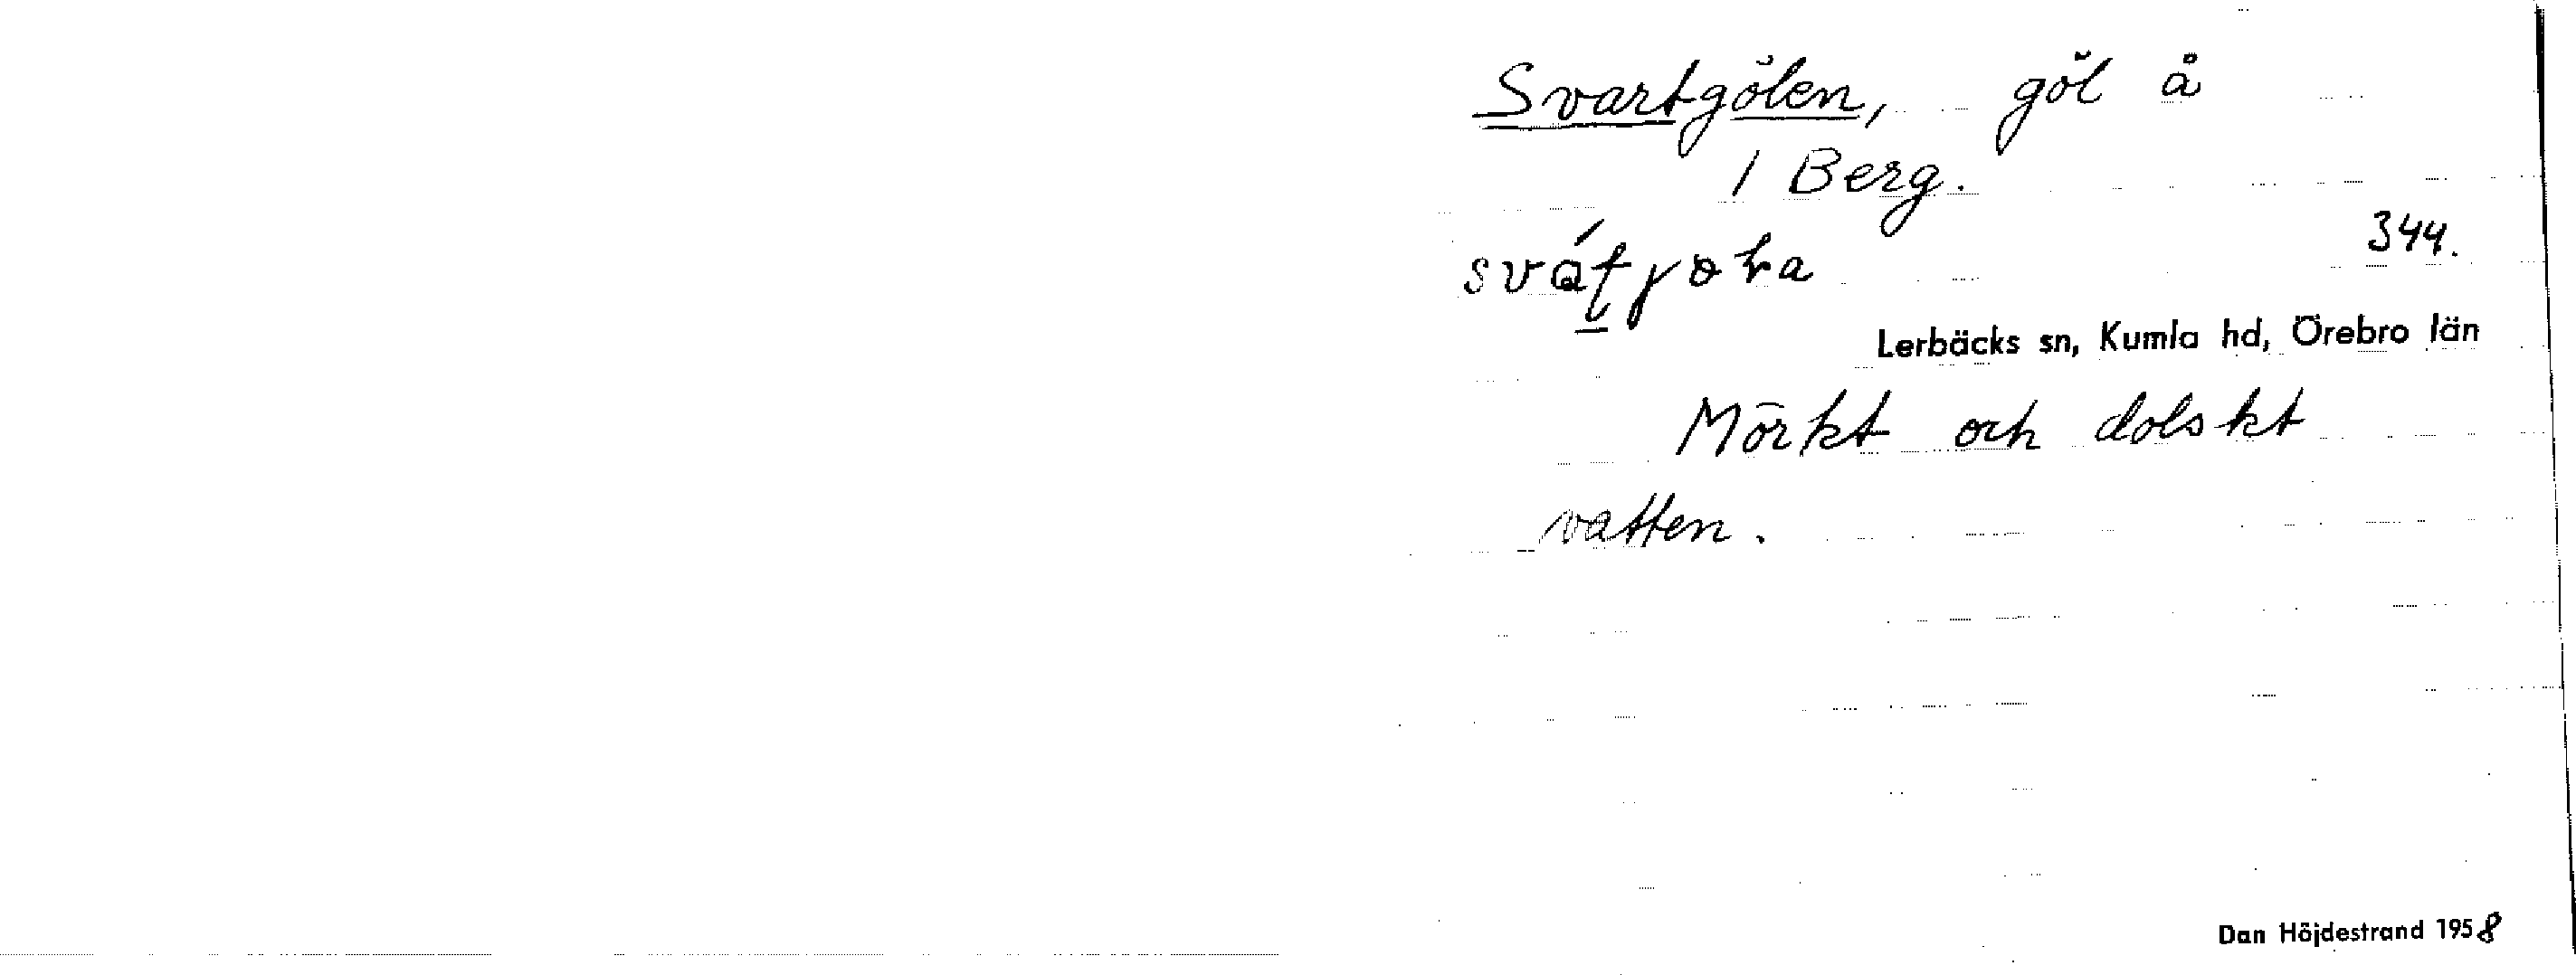 Svartgölen, göl å
1 Berg.
344.
Lerbäcks sn, Kumla hd, Örebro län
Mörkt och dolskt
vatten.
Dan Höjdestrand 1958